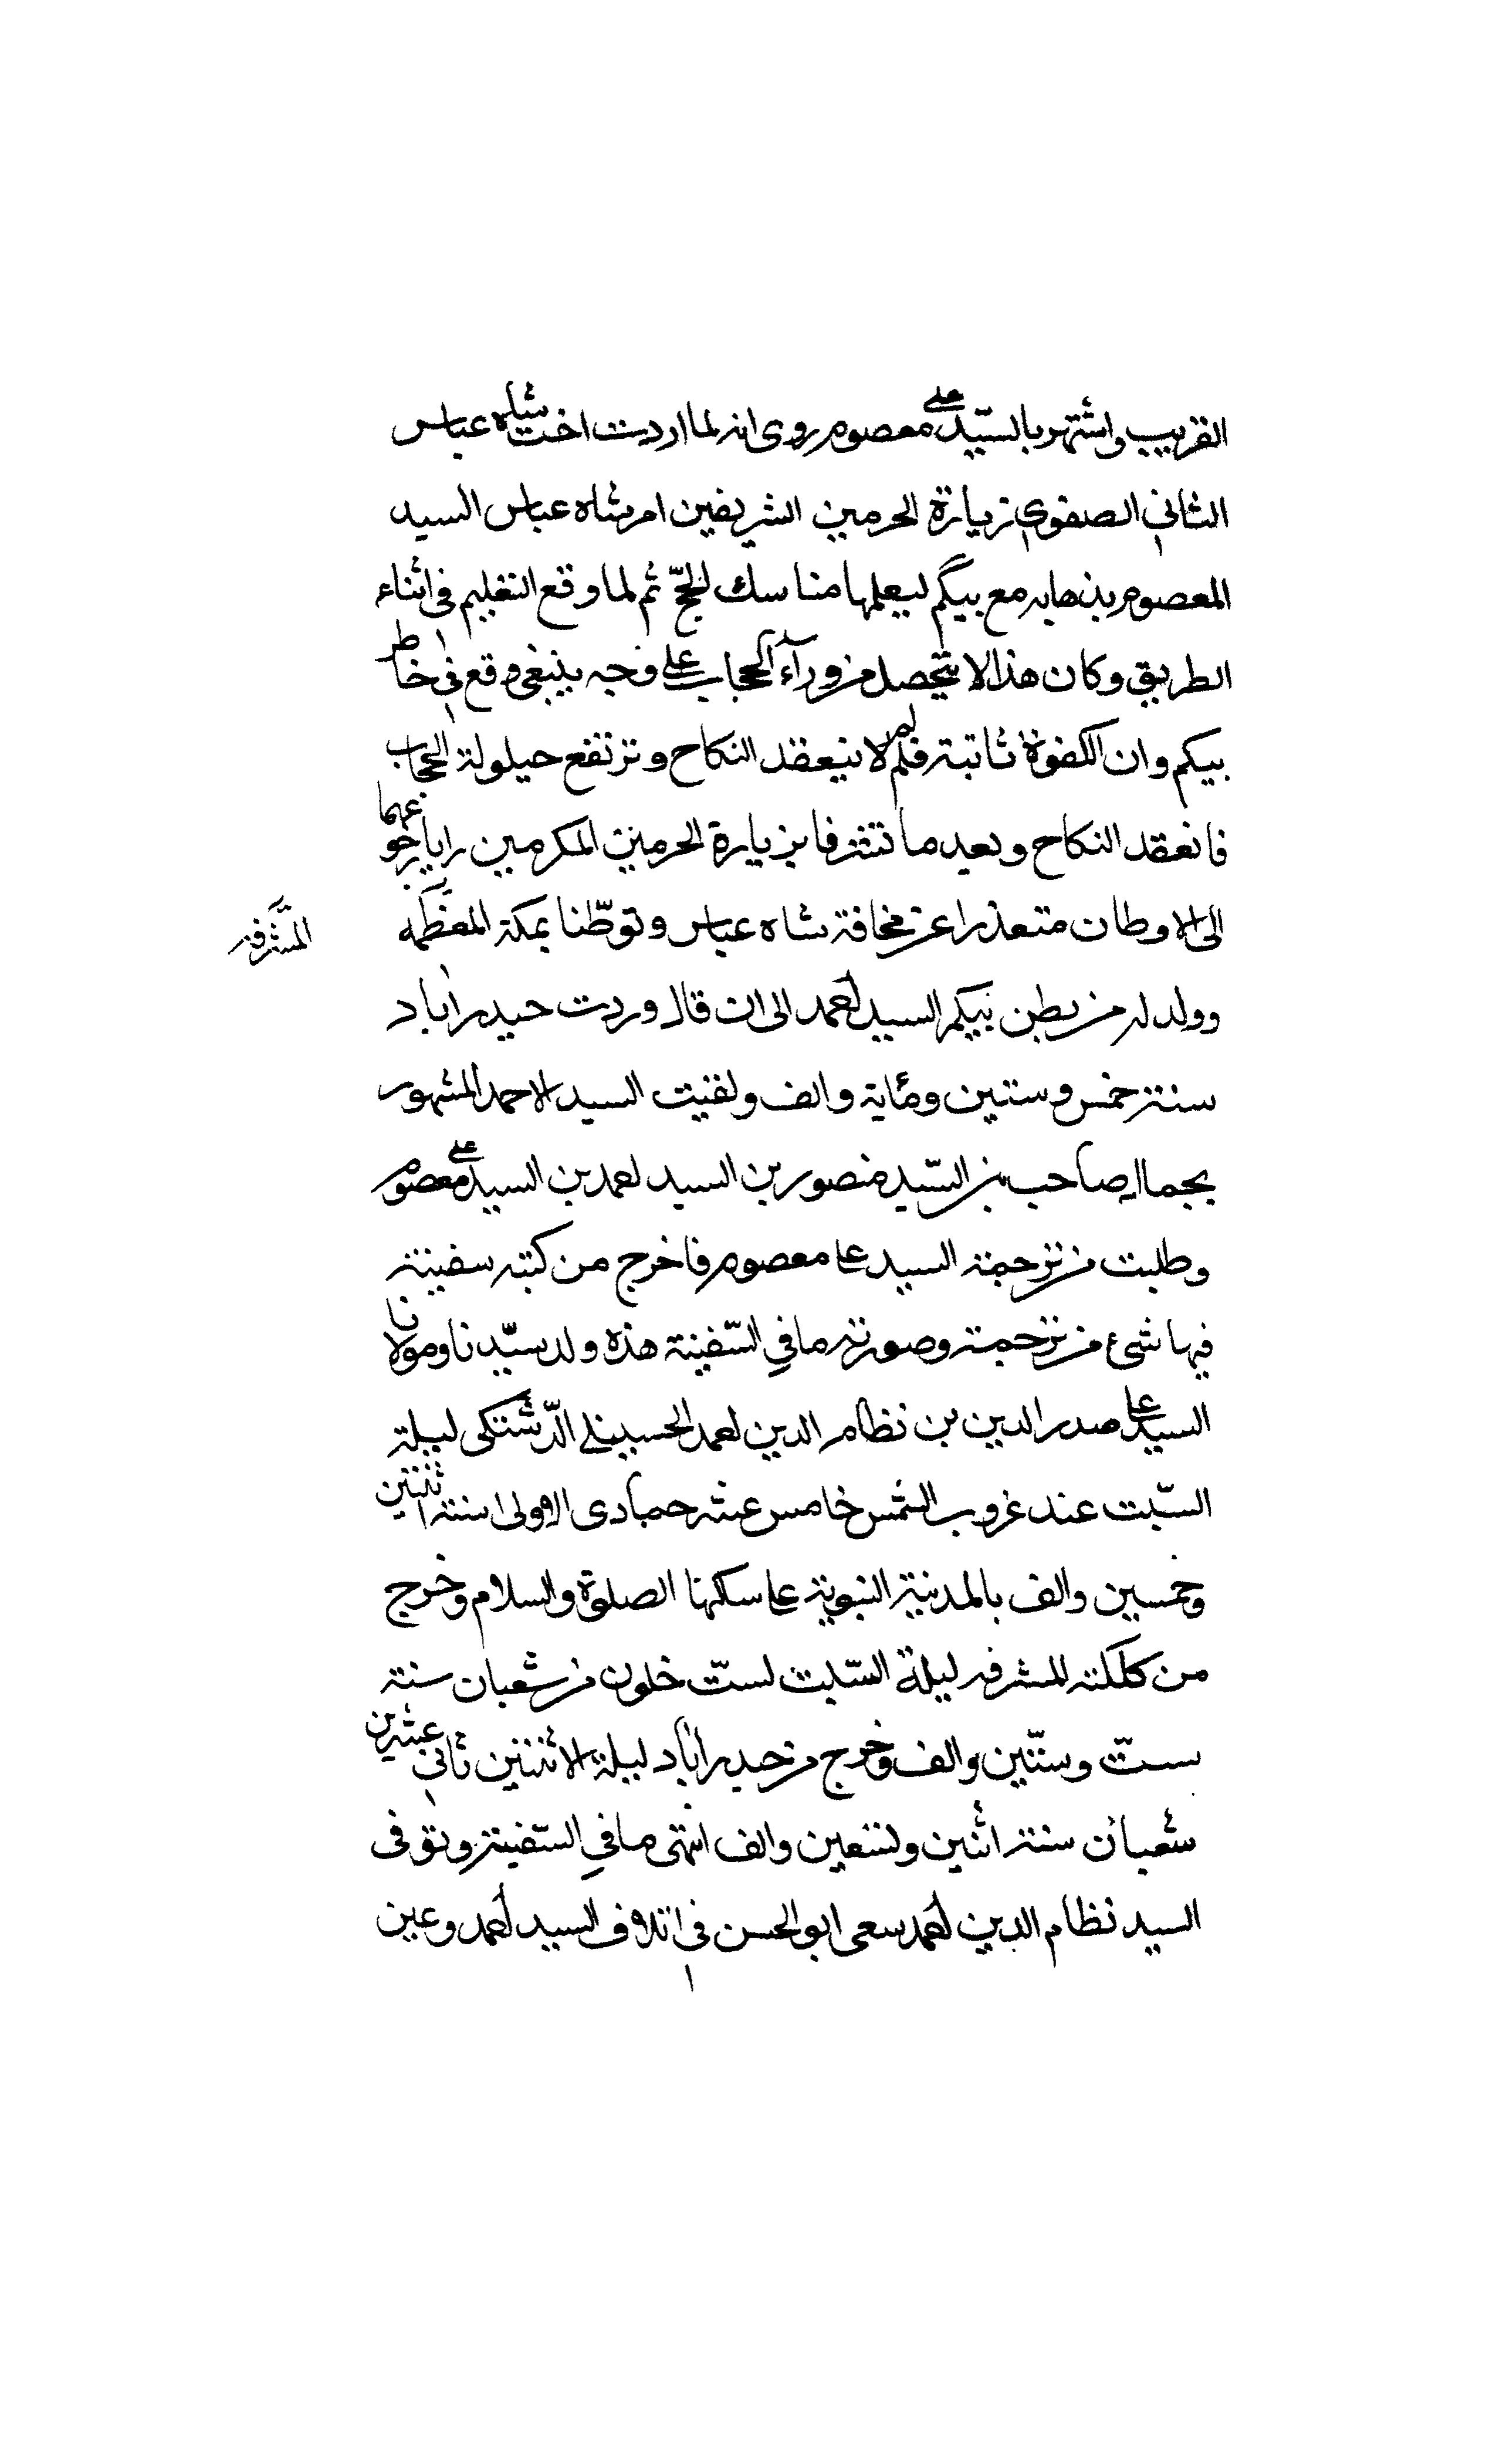 القريب واشتهر بالسيّد علي معصوم روى انه لما اردت اخت شاه عباس
الثاني الصفوى زيارة الحرمين الشريفين امر شاه عباس السيد
المعصوم بذهابه مع بيگم ليعلمها مناسك الحجّ ثم لما وقع التعليم فى اثناء
الطريق وكان هذا لا يتحصل من ورآء الحجاب على وجه ينبغى وقع فى خاطر
بيكم وان الكفوة ثابتة فلم لا ينعقد النكاح وترتفع حيلولة الحجاب
فانعقد النكاح وبعد ما تشرفا بزيارة الحرمين المكرمين رايا رجوعهما
الى الاوطان متعذرا عن مخافة شاه عباس وتوطّنا بمكة المعظّمه
المشرّفه
وولد له من بطن بيگم السيد احمد الى ان قال وردت حيدراباد
سنة خمس وستين ومأية والف ولقيت السيد الاحمد المشهور
بجمال صاحب بن السّيد منصور بن السيد احمد بن السيد علي معصوم
وطلبت من ترجمة السيد على معصوم فاخرج من كتبه سفينة
فيها شىء من ترجمته وصورته ما في السّفينة هذه ولد سيّدنا ومولانا
السيد على صدر الدين بن نظام الدين احمد الحسيني الدّشتكى ليلة
السّبت عند غروب الشمس خامس عشر جمادى الاولى سنة اثنتين
وخمسين والف بالمدنية النبوية على ساكنها الصلوة والسلام وخرج
من كلكته المشرفه ليلة السّبت لستّ خلون من شعبان سنة
ستّ وستّين والف وخرج من حيدراباد ليلة الاثنين ثاني عشرين
شعبان سنة اثنين وتسعين والف انتهى ما في السّفينة وتوفى
السيد نظام الدين احمد سعى ابو الحسن في اتلاف السيد احمد وعين